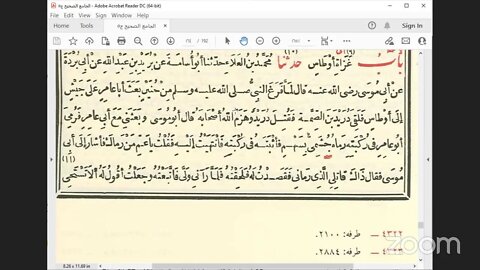 الجامع الصحيح ج٥ - Adobe Acrobat Reader DC (64-bit)
Home
Tools
الجامع الصحيح ج٥
Sign In
باب غزاة أوطاس حدثنا محمد بن العلاء حدثنا أبو أسامة عن بريد بن عبد الله عن أبي بردة
عن أبي موسى رضي الله عنه قال لما فرغ النبي صلى الله عليه وسلم من حنين بعث أبا عامر على جيش
إلى أوطاس فلقي دريد بن الصمة فقتل دريد وهزم الله أصحابه قال أبو موسى وبعثني مع أبي عامر فرمي
أبو عامر في ركبته رماه جشمي بسهم فأثبته في ركبته فانتهيت إليه فقلت يا عم من رماك فأشار إلى أبي
موسى فقال ذاك قاتلي الذي رماني فقصدت له فلحقته فلما رآني ولى فاتبعته وجعلت أقول له ألا تستحي
(١١)
٤٣٢٢ — طرفه: ٢١٠٠.
٤٣٢٣ — طرفه: ٢٨٨٤.
8.26 x 11.69 in
zoom